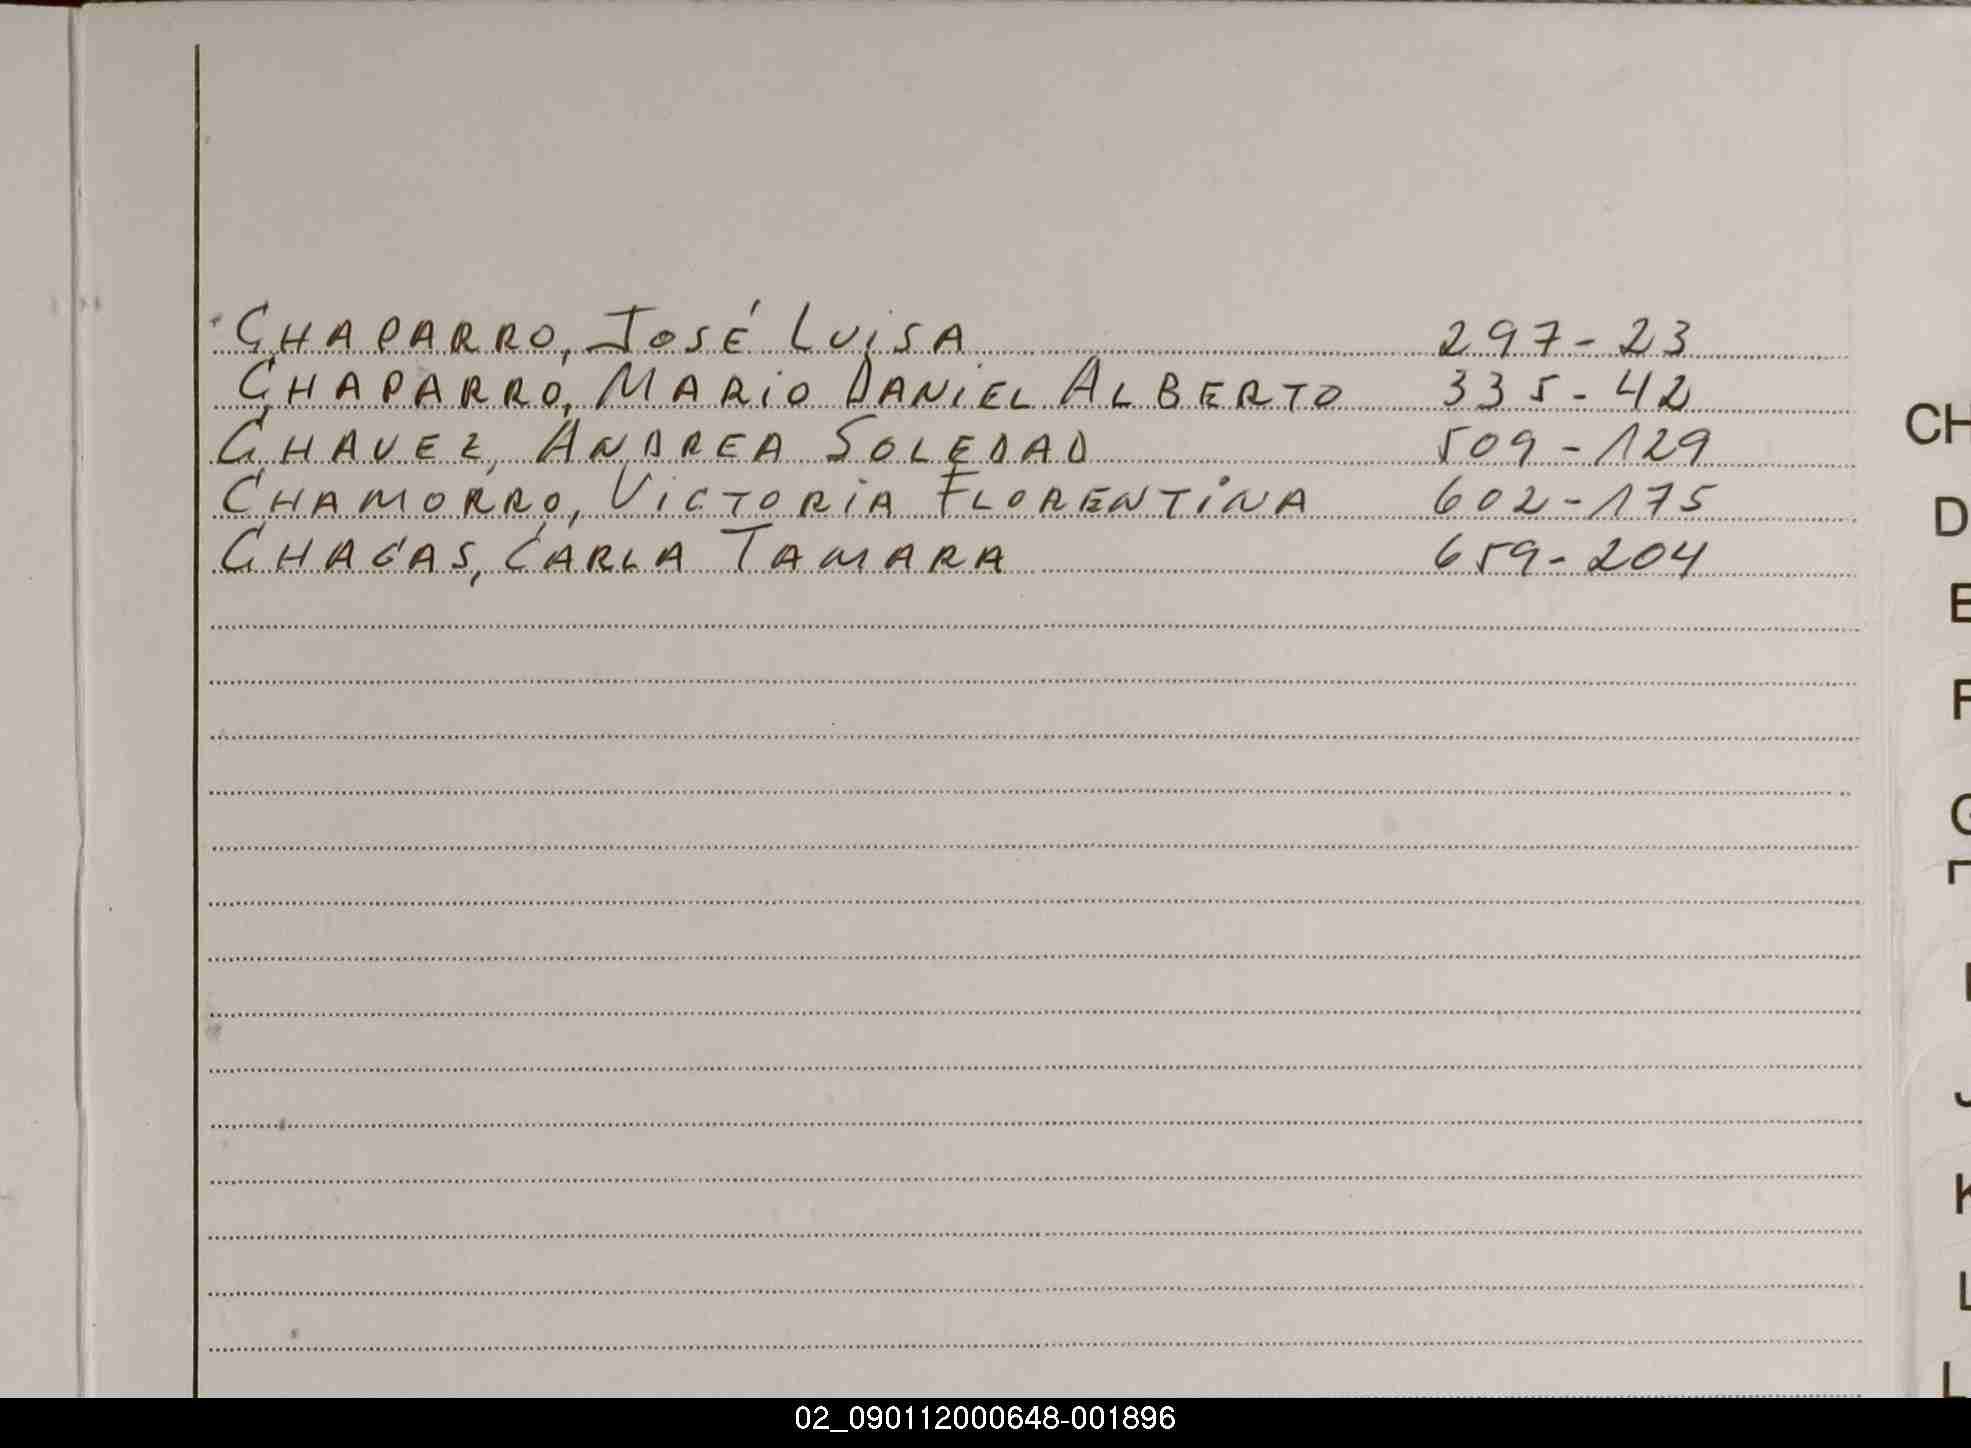 CHAPARRO, JOSÉ LUISA 297-23
CHAPARRO, MARIO DANIEL ALBERTO 335-42
CHAVEZ, ANDREA SOLEDAD 509-129
CHAMORRO, VICTORIA FLORENTINA 602-175
CHAGAS, CARLA TAMARA 659-204
CH
D
E
F
G
I
J
K
L
02_090112000648-001896